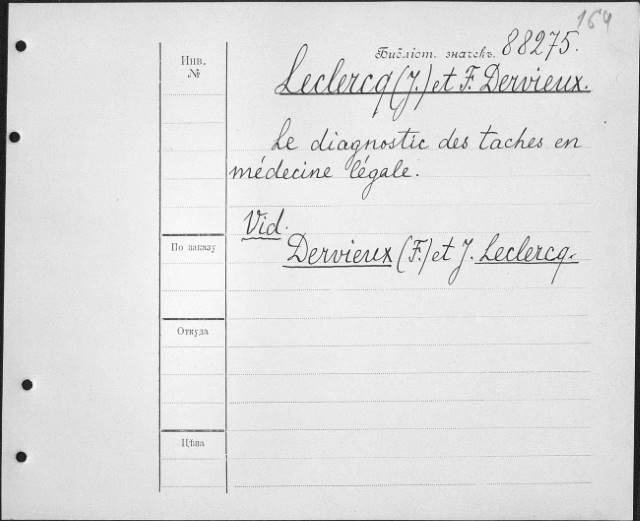 164
Инв.
№
Библіот. значекъ. 88275.
Leclercq (J.) et F. Dervieux.
Le diagnostic des taches en
médecine légale.
Vid.
Dervieux (F.) et J. Leclercq.
По заказу
Откуда
Цѣна